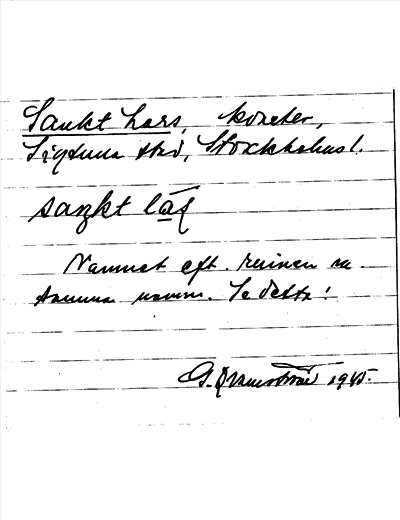 Sankt Lars, kvarter,
Sigtuna stad, Stockholms l.
saŋkt la̱ʃ
Namnet eft. ruinen m.
samma namn. Se detta!
G. Qvarnström 1945.